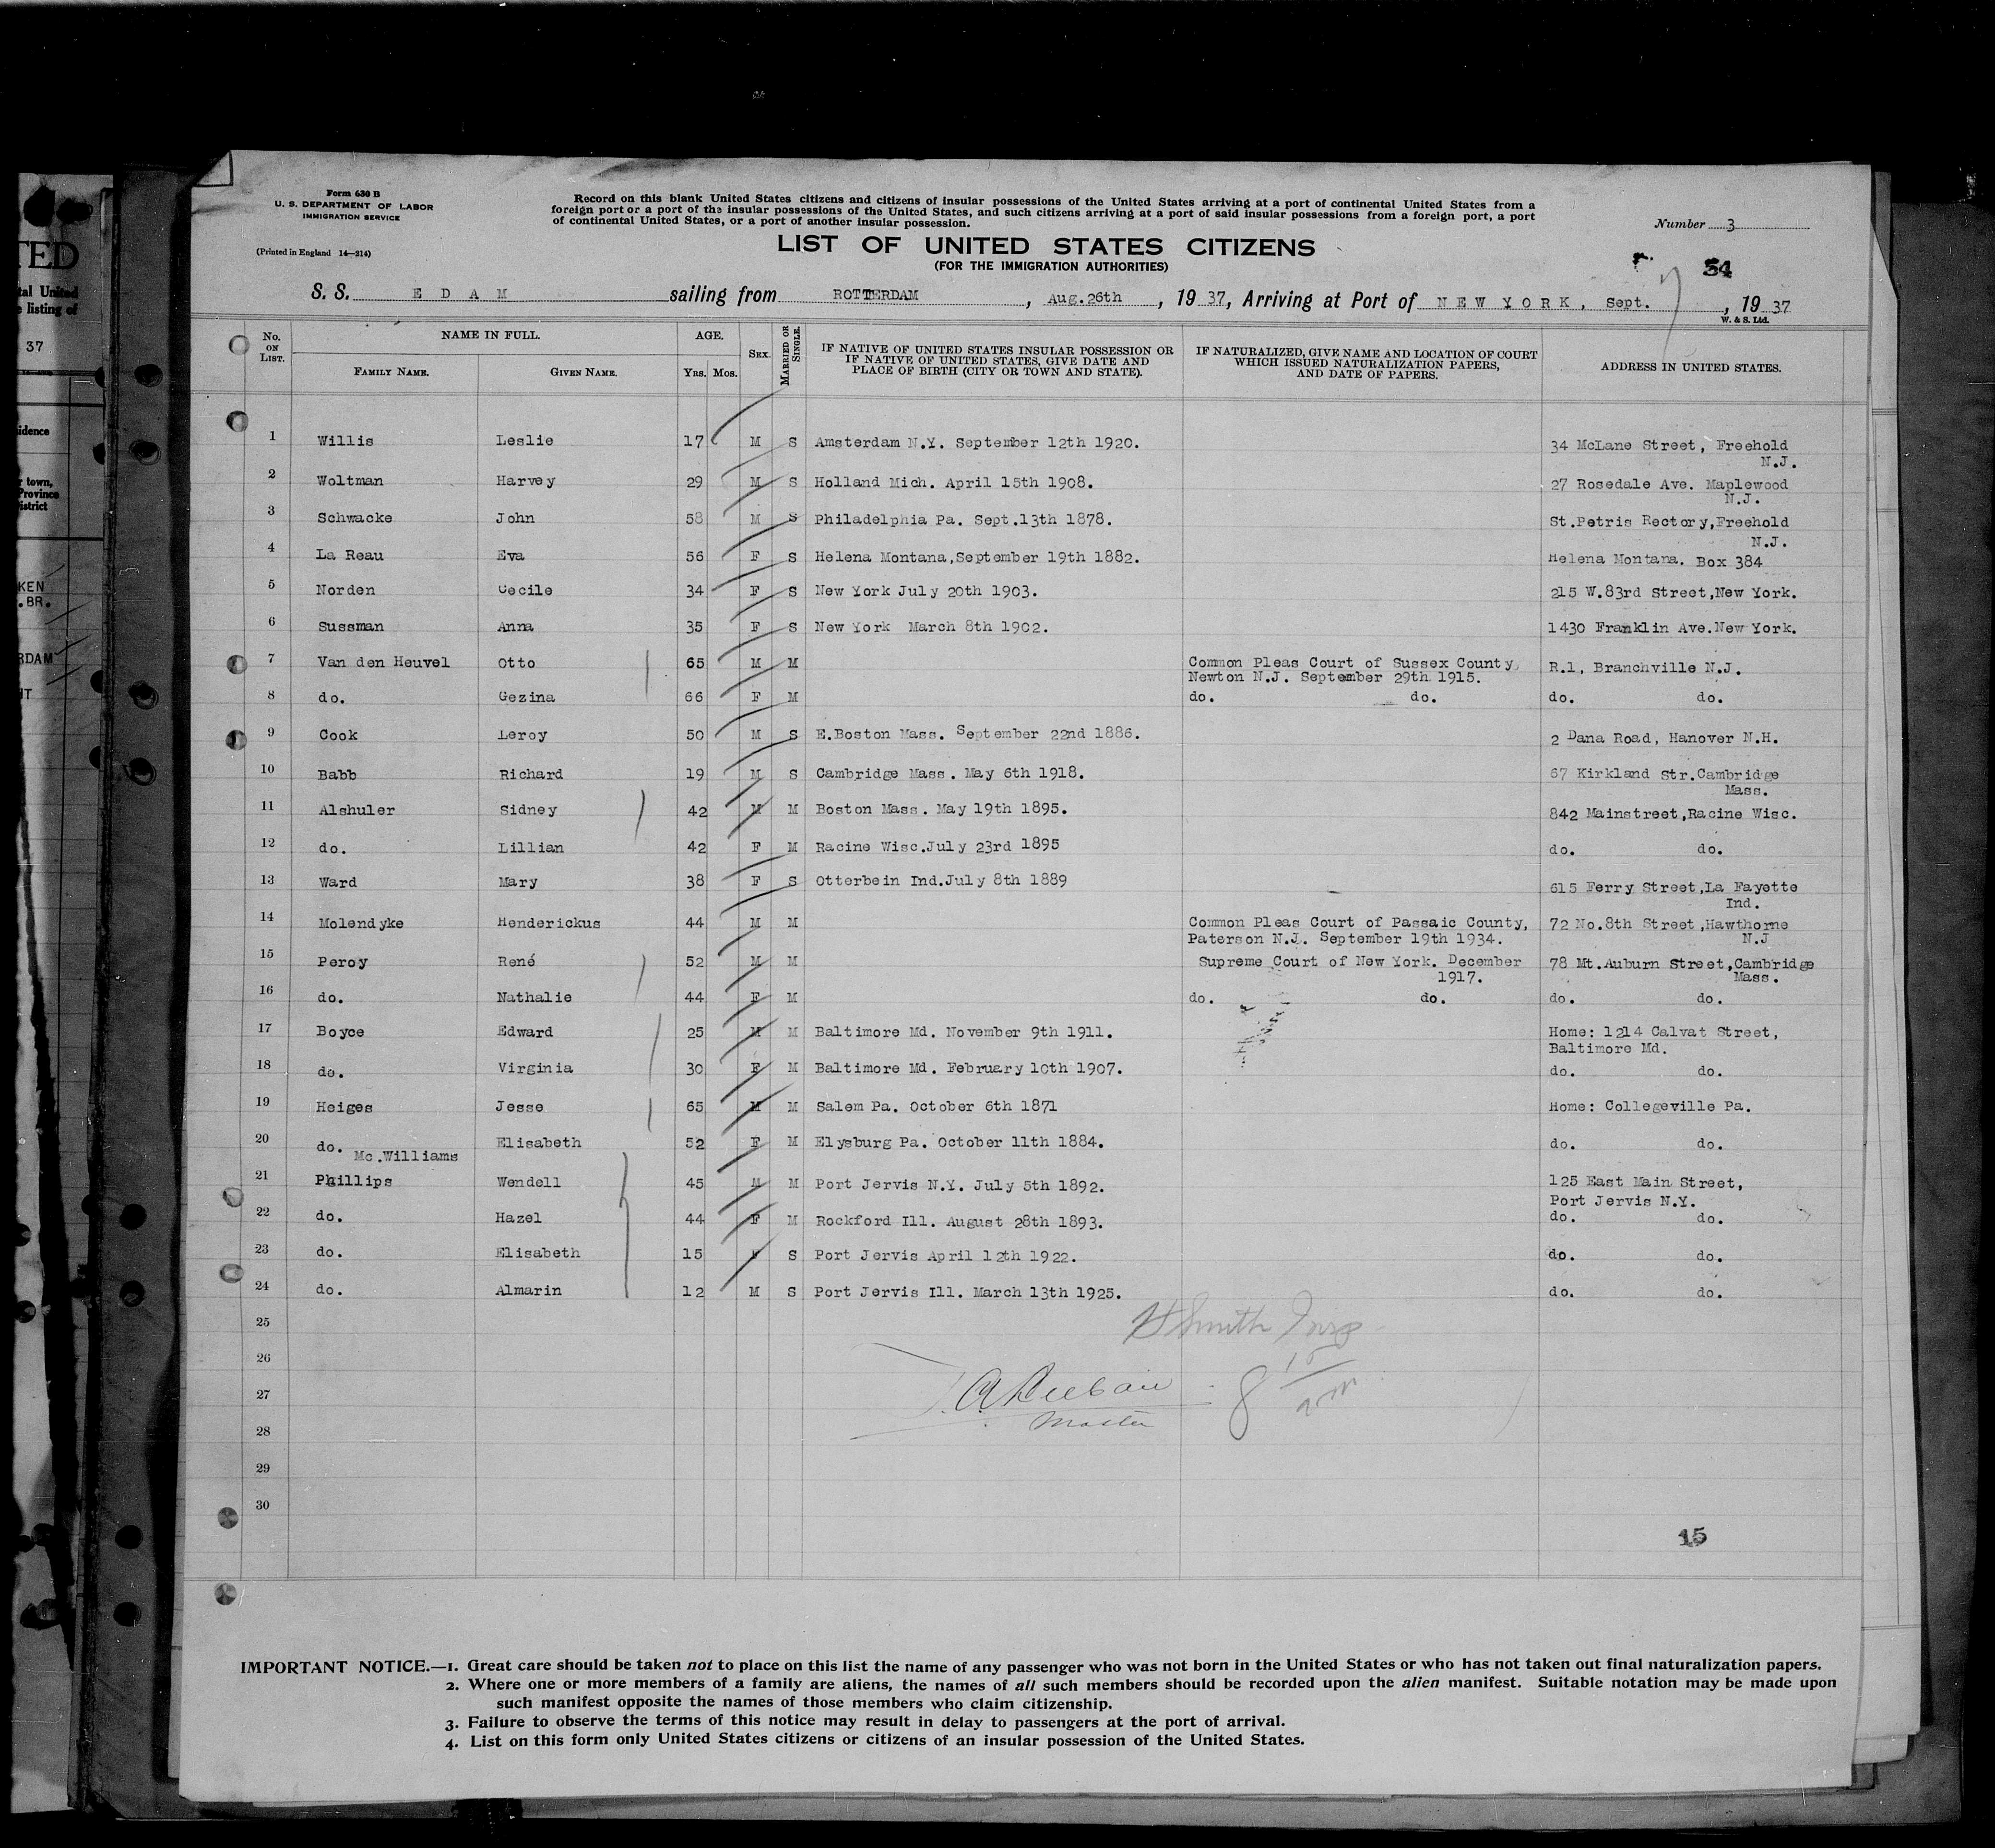 TED
tal United
e listing of
37
idence
r town,
Province
istrict
KEN
.BR.
RDAM
NT
Form 630 B
U. S. DEPARTMENT OF LABOR
IMMIGRATION SERVICE
(Printed in England 14—214)
Record on this blank United States citizens and citizens of insular possessions of the United States arriving at a port of continental United States from a
foreign port or a port of the insular possessions of the United States, and such citizens arriving at a port of said insular possessions from a foreign port, a port
of continental United States, or a port of another insular possession.
Number 3
LIST OF UNITED STATES CITIZENS
(FOR THE IMMIGRATION AUTHORITIES)
34
S. S. E D A M sailing from ROTTERDAM, Aug.26th, 19 37, Arriving at Port of NEW YORK, Sept. 7, 19 37
W. & S. Ltd.
No. ON LIST. NAME IN FULL. FAMILY NAME. GIVEN NAME. AGE. YRS. MOS. SEX. MARRIED OR SINGLE. IF NATIVE OF UNITED STATES INSULAR POSSESSION OR IF NATIVE OF UNITED STATES, GIVE DATE AND PLACE OF BIRTH (CITY OR TOWN AND STATE). IF NATURALIZED, GIVE NAME AND LOCATION OF COURT WHICH ISSUED NATURALIZATION PAPERS, AND DATE OF PAPERS. ADDRESS IN UNITED STATES.
1 Willis Leslie 17 M S Amsterdam N.Y. September 12th 1920. 34 McLane Street, Freehold
N.J.
2 Woltman Harvey 29 M S Holland Mich. April 15th 1908. 27 Rosedale Ave. Maplewood
N.J.
3 Schwacke John 58 M S Philadelphia Pa. Sept.13th 1878. St.Petris Rectory,Freehold
N.J.
4 La Reau Eva 56 F S Helena Montana,September 19th 1882. Helena Montana. Box 384
5 Norden Cecile 34 F S New York July 20th 1903. 215 W.83rd Street,New York.
6 Sussman Anna 35 F S New York March 8th 1902. 1430 Franklin Ave.New York.
7 Van den Heuvel Otto 65 M M Common Pleas Court of Sussex County, R.1, Branchville N.J.
Newton N.J. September 29th 1915.
8 do. Gezina 66 F M do. do. do. do.
9 Cook Leroy 50 M S E.Boston Mass. September 22nd 1886. 2 Dana Road, Hanover N.H.
10 Babb Richard 19 M S Cambridge Mass. May 6th 1918. 67 Kirkland Str.Cambridge
Mass.
11 Alshuler Sidney 42 M M Boston Mass. May 19th 1895. 842 Mainstreet,Racine Wisc.
12 do. Lillian 42 F M Racine Wisc.July 23rd 1895 do. do.
13 Ward Mary 38 F S Otterbein Ind.July 8th 1889 615 Ferry Street,La Fayette
Ind.
14 Molendyke Henderickus 44 M M Common Pleas Court of Passaic County, 72 No.8th Street,Hawthorne
Paterson N.J. September 19th 1934. N.J
15 Peroy René 52 M M Supreme Court of New York. December 78 Mt.Auburn Street,Cambridge
1917. Mass.
16 do. Nathalie 44 F M do. do. do. do.
17 Boyce Edward 25 M M Baltimore Md. November 9th 1911. Home: 1214 Calvat Street,
Baltimore Md.
18 do. Virginia 30 F M Baltimore Md. February 10th 1907. do. do.
19 Heiges Jesse 65 M M Salem Pa. October 6th 1871 Home: Collegeville Pa.
20 do. Elisabeth 52 F M Elysburg Pa. October 11th 1884. do. do.
Mc.Williams
21 Phillips Wendell 45 M M Port Jervis N.Y. July 5th 1892. 125 East Main Street,
Port Jervis N.Y.
22 do. Hazel 44 F M Rockford Ill. August 28th 1893. do. do.
23 do. Elisabeth 15 F S Port Jervis April 12th 1922. do. do.
24 do. Almarin 12 M S Port Jervis Ill. March 13th 1925. do. do.
25
H Smith Insp
26
27
8 15 am
Master
28
29
30
15
IMPORTANT NOTICE.—1. Great care should be taken not to place on this list the name of any passenger who was not born in the United States or who has not taken out final naturalization papers.
2. Where one or more members of a family are aliens, the names of all such members should be recorded upon the alien manifest. Suitable notation may be made upon
such manifest opposite the names of those members who claim citizenship.
3. Failure to observe the terms of this notice may result in delay to passengers at the port of arrival.
4. List on this form only United States citizens or citizens of an insular possession of the United States.